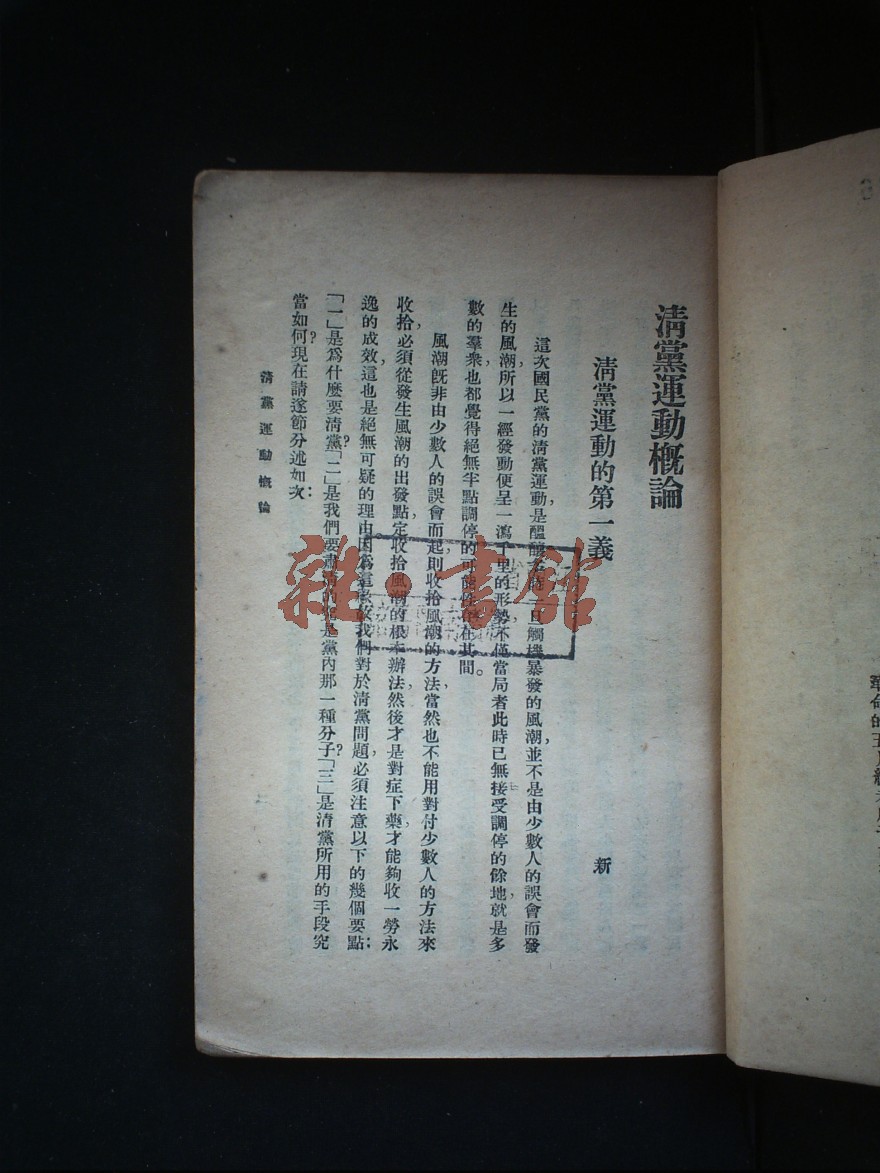 清黨運動概論
清黨運動的第一義
新
這次國民黨的清黨運動,是醞釀 一旦觸機暴發的風潮,並不是由少數人的誤會而發
生的風潮,所以一經發動,便呈一瀉千里的形勢,不僅當局者此時已無接受調停的餘地,就是多
數的羣衆也都覺得絕無半點調停的可能性 在其間。
風潮既非由少數人的誤會而起,則收拾風潮的方法,當然也不能用對付少數人的方法來
收拾,必須從發生風潮的出發點,定收拾風潮的根本辦法,然後才是對症下藥,才能夠收一勞永
逸的成效,這也是絕無可疑的理由,因爲這 故,我們對於清黨問題,必須注意以下的幾個要點:
「一」是爲什麼要清黨?「二」是我們要肅清的 是黨內那一種分子?「三」是清黨所用的手段究
當如何?現在請逐節分述如次:
清黨運動概論
雜·書館